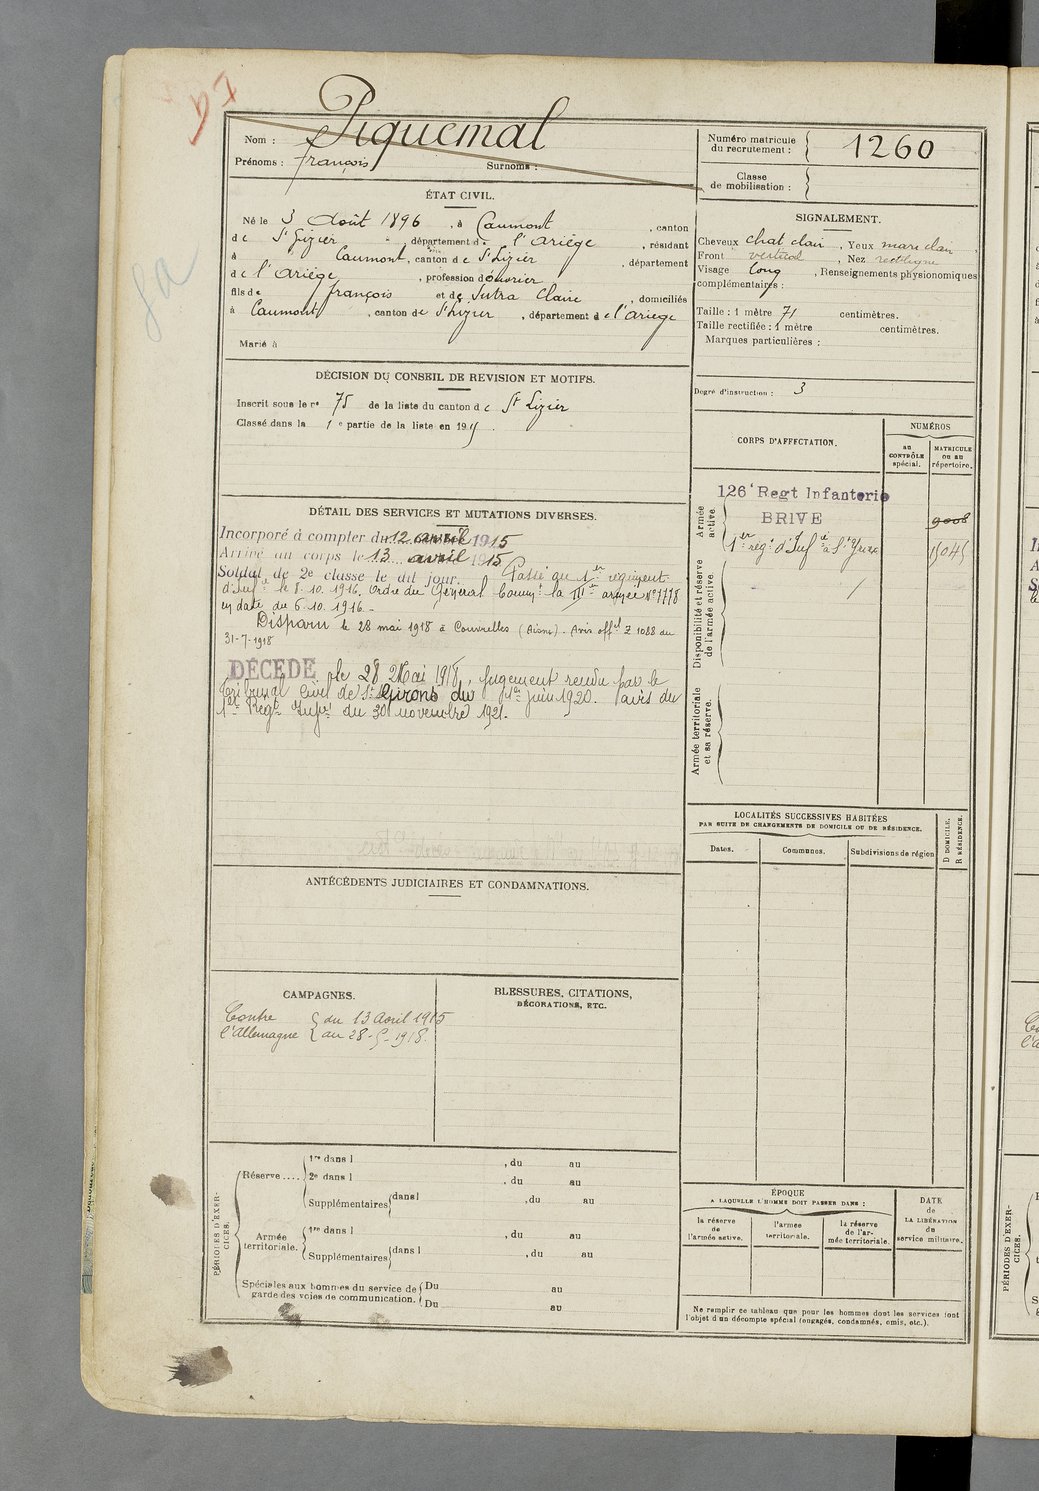 Piquemal
Nom :
Prénoms : françois Surnoms :
Numéro matricule du recrutement : 1260
Classe de mobilisation :
ÉTAT CIVIL.
Né le 3 Août 1896, à Caumont, canton
de St Lizier, département de l'Ariége, résidant
à Caumont, canton de St Lizier, département
de l'Ariége, profession d'ouvrier
fils de françois et de Sutra Claire, domiciliés
à Caumont, canton de St Lizier, département de l'Ariege
Marié à
SIGNALEMENT.
Cheveux chat clair, Yeux mar clair,
Front vertical, Nez rectiligne
Visage long, Renseignements physionomiques
complémentaires :
Taille : 1 mètre 71 centimètres.
Taille rectifiée : 1 mètre centimètres.
Marques particulières :
Degré d'instruction : 3
DÉCISION DU CONSEIL DE REVISION ET MOTIFS.
Inscrit sous le no 75 de la liste du canton de St Lizier
Classé dans la 1e partie de la liste en 191
CORPS D'AFFECTATION.
NUMÉROS
AU CONTRÔLE spécial.
MATRICULE ou au répertoire.
Armée active.
126e Regt Infanterie
BRIVE
9008
1er reg. d'Infie à St Yrieix
15045
Disponibilité et réserve de l'armée active.
Armée territoriale et sa réserve.
DÉTAIL DES SERVICES ET MUTATIONS DIVERSES.
Incorporé à compter du 12 avril 1915
Arrivé au corps le 13 avril 1915
Soldat de 2e classe le dit jour. Passé au 1er régiment
d'Infie le 8.10.1916. Ordre du Général Commt la IIIe armée No 7778
en date du 6.10.1916.-
Disparu le 28 mai 1918 à Couvrelles (Aisne). Avis offel Z 1088 du
31-7-1918
DÉCÉDÉ le 28 Mai 1918, Jugement rendu par le
Tribunal Civil de St Girons du 1er juin 1920. avis du
1er Regt Infie du 30 novembre 1921.
LOCALITÉS SUCCESSIVES HABITÉES
PAR SUITE DE CHANGEMENTS DE DOMICILE OU DE RÉSIDENCE.
D DOMICILE.
R RÉSIDENCE.
Dates. Communes. Subdivisions de région
ANTÉCÉDENTS JUDICIAIRES ET CONDAMNATIONS.
CAMPAGNES.
Contre du 13 avril 1915
l'Allemagne au 28-5-1918.
BLESSURES, CITATIONS,
DÉCORATIONS, ETC.
PÉRIODES D'EXERCICES.
Réserve....
1re dans l , du au
2e dans l , du au
Supplémentaires dans l , du au
Armée territoriale.
1re dans l , du au
Supplémentaires dans l , du au
Spéciales aux hommes du service de garde des voies de communication.
Du au
Du au
ÉPOQUE
A LAQUELLE L'HOMME DOIT PASSER DANS :
la réserve de l'armée active.
l'armée territoriale.
la réserve de l'armée territoriale.
DATE
de
LA LIBÉRATION
du
service militaire.
Ne remplir ce tableau que pour les hommes dont les services font
l'objet d'un décompte spécial (engagés, condamnés, omis, etc.).